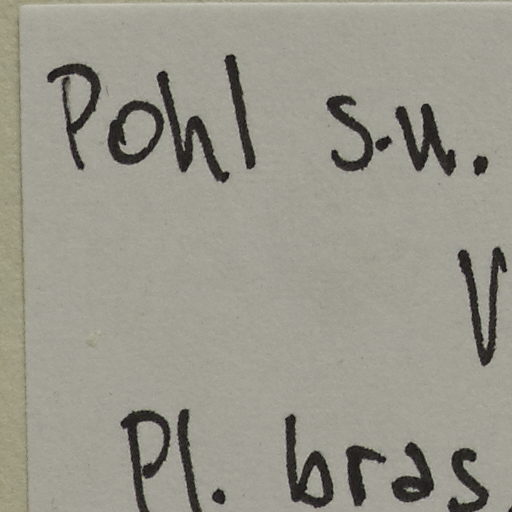 Pohl s.n.
V
Pl. bras.